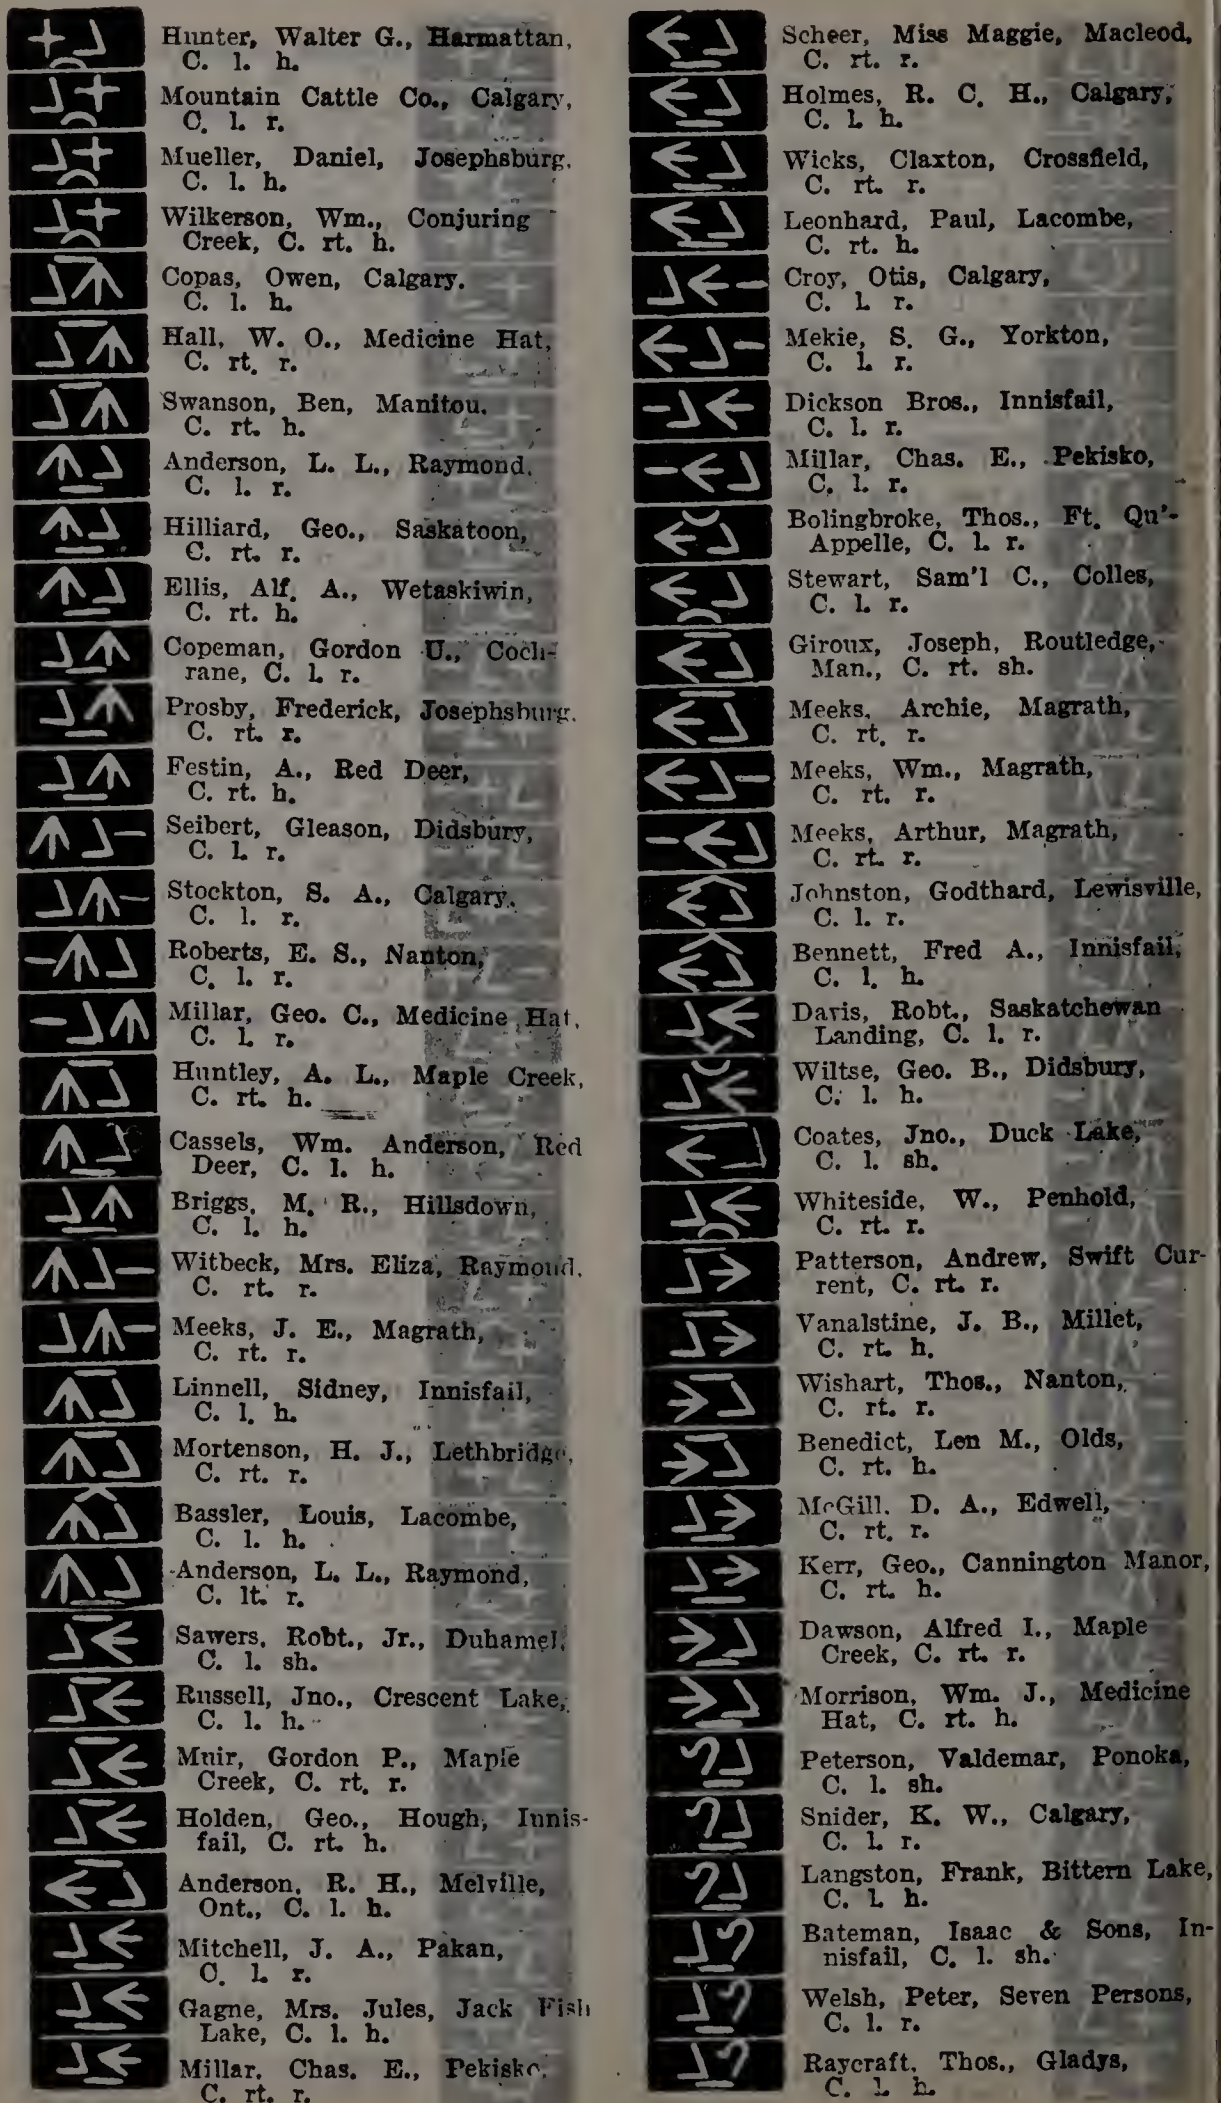 Hunter, Walter G., Harmattan,
C. l. h.
Mountain Cattle Co., Calgary,
C. l. r.
Mueller, Daniel, Josephsburg,
C. l. h.
Wilkerson, Wm., Conjuring
Creek, C. rt. h.
Copas, Owen, Calgary.
C. l. h.
Hall, W. O., Medicine Hat,
C. rt. r.
Swanson, Ben, Manitou.
C. rt. h.
Anderson, L. L., Raymond.
C. l. r.
Hilliard, Geo., Saskatoon,
C. rt. r.
Ellis, Alf. A., Wetaskiwin,
C. rt. h.
Copeman, Gordon U., Coch-
rane, C. l. r.
Prosby, Frederick, Josephsburg.
C. rt. r.
Festin, A., Red Deer,
C. rt. h.
Seibert, Gleason, Didsbury,
C. l. r.
Stockton, S. A., Calgary.
C. l. r.
Roberts, E. S., Nanton,
C. l. r.
Millar, Geo. C., Medicine Hat,
C. l. r.
Huntley, A. L., Maple Creek,
C. rt. h.
Cassels, Wm. Anderson, Red
Deer, C. l. h.
Briggs, M. R., Hillsdown,
C. l. h.
Witbeck, Mrs. Eliza, Raymond.
C. rt. r.
Meeks, J. E., Magrath,
C. rt. r.
Linnell, Sidney, Innisfail,
C. l. h.
Mortenson, H. J., Lethbridge,
C. rt. r.
Bassler, Louis, Lacombe,
C. l. h.
Anderson, L. L., Raymond,
C. lt. r.
Sawers, Robt., Jr., Duhamel,
C. l. sh.
Russell, Jno., Crescent Lake,
C. l. h.
Muir, Gordon P., Maple
Creek, C. rt. r.
Holden, Geo., Hough, Innis-
fail, C. rt. h.
Anderson, R. H., Melville,
Ont., C. l. h.
Mitchell, J. A., Pakan,
C. l. r.
Gagne, Mrs. Jules, Jack Fish
Lake, C. l. h.
Millar, Chas. E., Pekisko,
C. rt. r.
Scheer, Miss Maggie, Macleod,
C. rt. r.
Holmes, R. C. H., Calgary,
C. l. h.
Wicks, Claxton, Crossfield,
C. rt. r.
Leonhard, Paul, Lacombe,
C. rt. h.
Croy, Otis, Calgary,
C. l. r.
Mekie, S. G., Yorkton,
C. l. r.
Dickson Bros., Innisfail,
C. l. r.
Millar, Chas. E., Pekisko,
C. l. r.
Bolingbroke, Thos., Ft. Qu'-
Appelle, C. l. r.
Stewart, Sam'l C., Colles,
C. l. r.
Giroux, Joseph, Routledge,
Man., C. rt. sh.
Meeks, Archie, Magrath,
C. rt. r.
Meeks, Wm., Magrath,
C. rt. r.
Meeks, Arthur, Magrath,
C. rt. r.
Johnston, Godthard, Lewisville,
C. l. r.
Bennett, Fred A., Innisfail,
C. l. h.
Davis, Robt., Saskatchewan
Landing, C. l. r.
Wiltse, Geo. B., Didsbury,
C. l. h.
Coates, Jno., Duck Lake,
C. l. sh.
Whiteside, W., Penhold,
C. rt. r.
Patterson, Andrew, Swift Cur-
rent, C. rt. r.
Vanalstine, J. B., Millet,
C. rt. h.
Wishart, Thos., Nanton,
C. rt. r.
Benedict, Len M., Olds,
C. rt. h.
McGill. D. A., Edwell,
C. rt. r.
Kerr, Geo., Cannington Manor,
C. rt. h.
Dawson, Alfred I., Maple
Creek, C. rt. r.
Morrison, Wm. J., Medicine
Hat, C. rt. h.
Peterson, Valdemar, Ponoka,
C. l. sh.
Snider, K. W., Calgary,
C. l. r.
Langston, Frank, Bittern Lake,
C. l. h.
Bateman, Isaac & Sons, In-
nisfail, C. l. sh.
Welsh, Peter, Seven Persons,
C. l. r.
Raycraft, Thos., Gladys,
C. l. h.